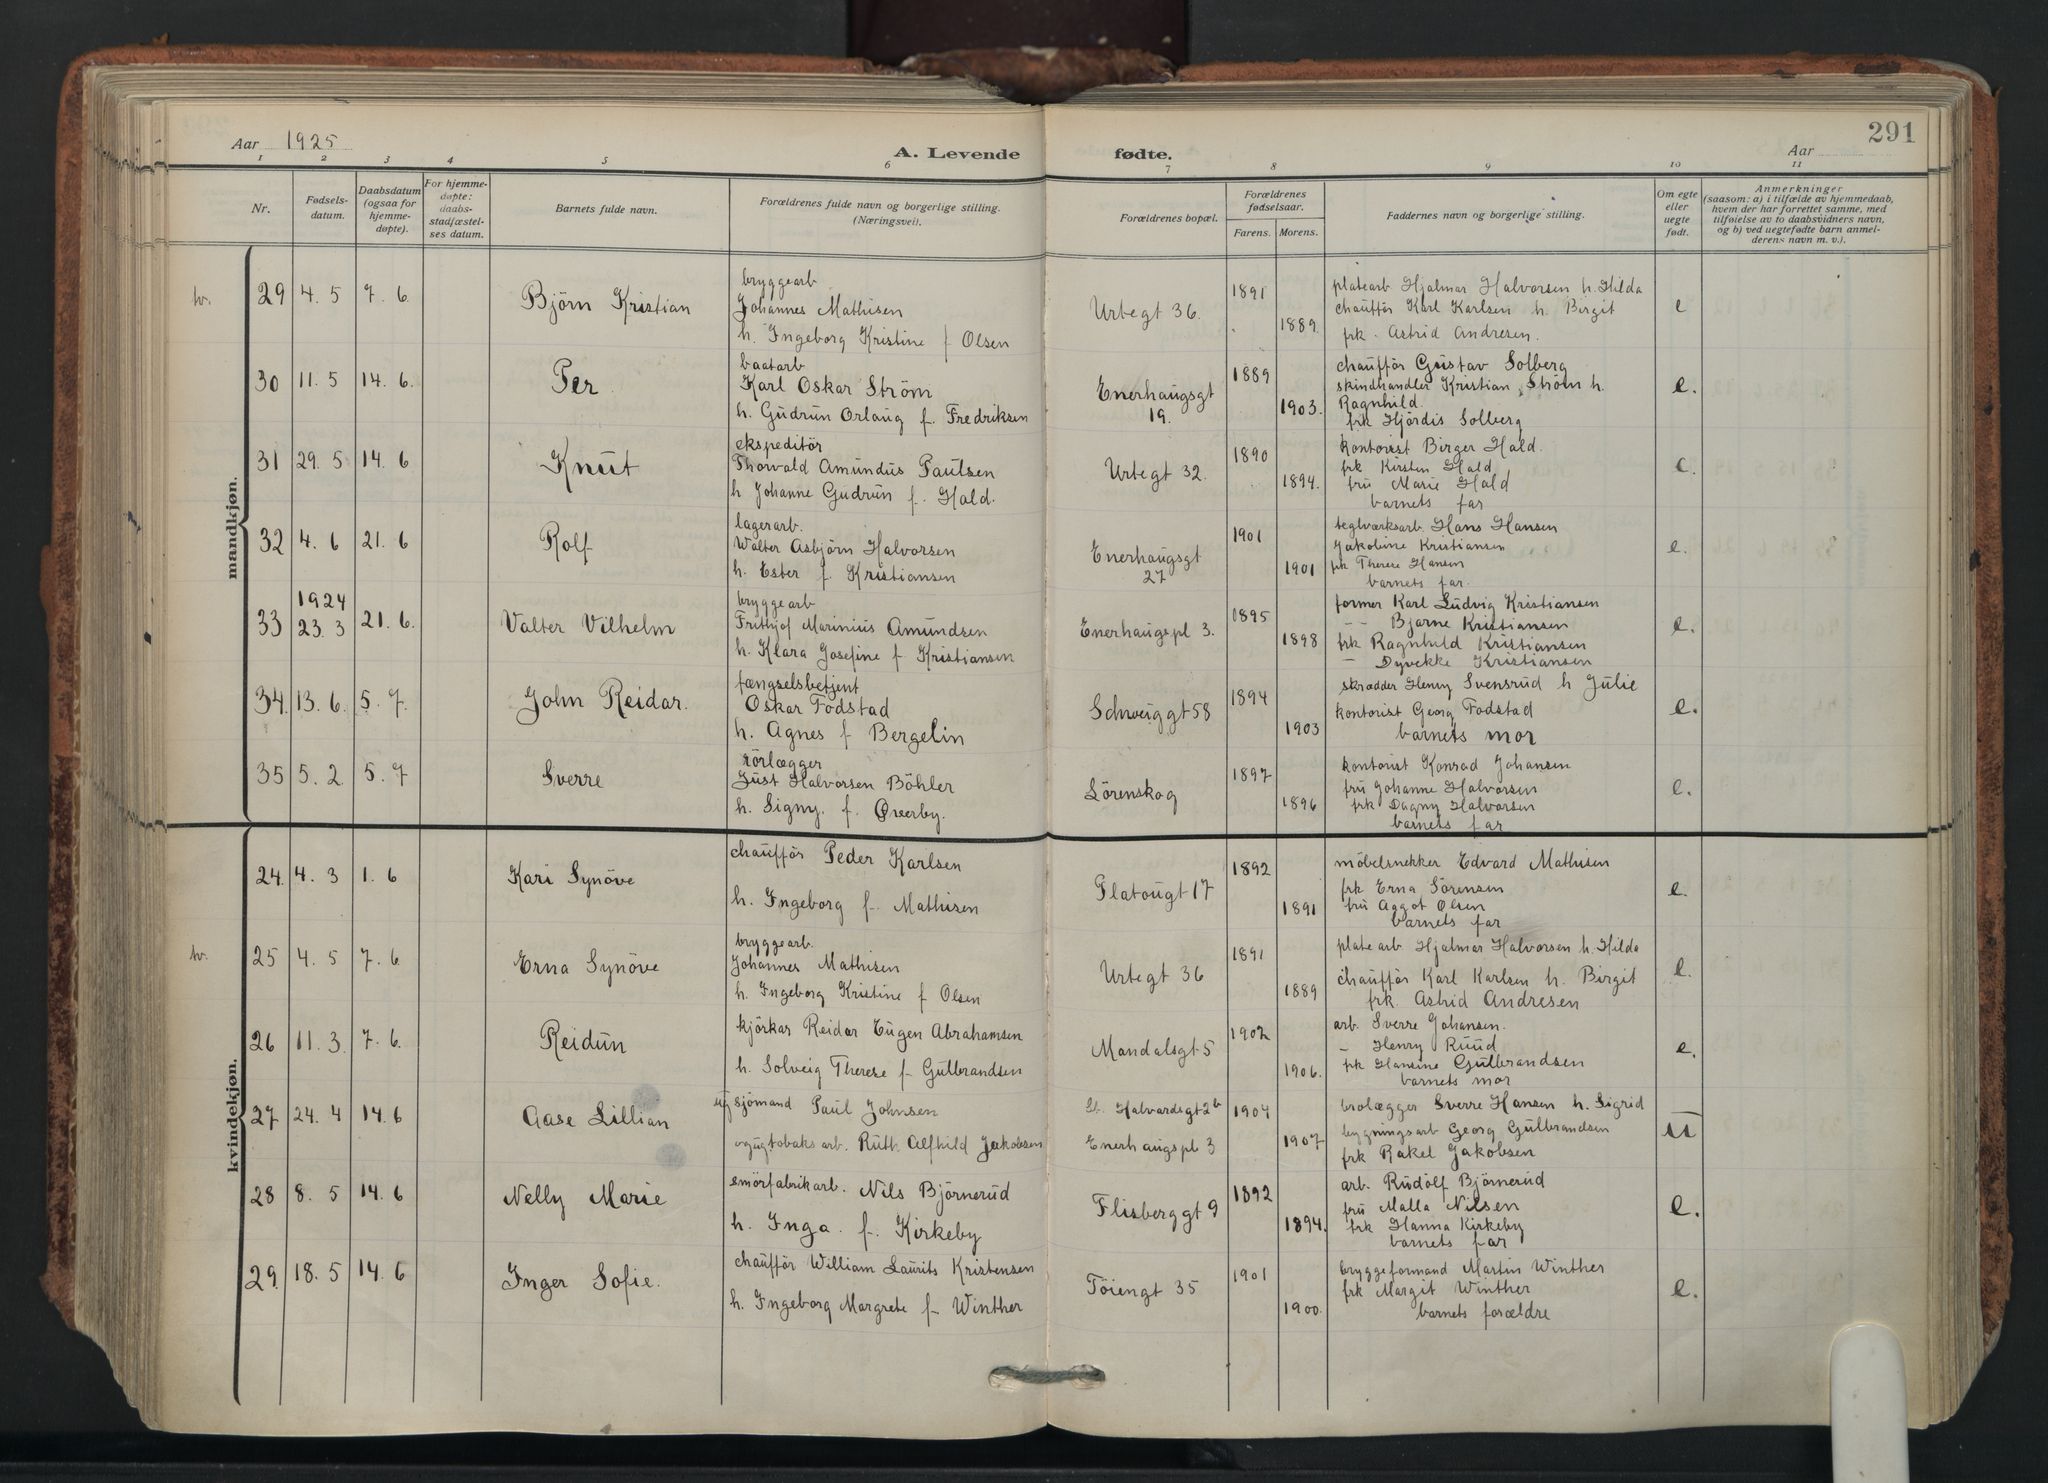 291
Aar 1925
A. Levende fødte.
Aar
1 2 3 4 5 6 7 8 9 10 11
Nr.
Fødsels-
datum.
Daabsdatum
(ogsaa for
hjemme-
døpte).
For hjemme-
døpte:
daabs-
stadfæstel-
ses datum.
Barnets fulde navn.
Forældrenes fulde navn og borgerlige stilling.
(Næringsvei).
Forældrenes bopæl.
Forældrenes
fødselsaar.
Farens. Morens.
Faddernes navn og borgerlige stilling.
Om egte
eller
uegte
født.
Anmerkninger
(saasom: a) i tilfælde av hjemmedaab,
hvem der har forrettet samme, med
tilføielse av to daabsvidners navn,
og b) ved uegtefødte barn anmel-
derens navn m. v.).
mandkjøn.
tv. 29 4. 5 7. 6. Björn Kristian
bryggearb
Johannes Mathisen
h. Ingeborg Kristine f Olsen
Urtegt 36.
1891
1889.
platearb Hjalmar Halvorsen h. Hilda
chaufför Karl Karlsen h. Birgit
frk. Astrid Andresen.
e
30 11. 5 14. 6. Per.
baatarb
Karl Oskar Ström
h. Gudrun Orlaug f. Fredriksen
Enerhaugsgt
19.
1889
1903.
chaufför Gustav Solberg
skindhandler Kristian Ström h.
Ragnhild.
frk Hjördis Solberg
e.
31 29. 5 14. 6 Knut
ekspeditör
Thorvald Amundus Paulsen
h Johanne Gudrun f. Hald.
Urtegt 32.
1890
1894.
kontorist Birger Hald.
frk Kirsten Hald
fru Marie Hald
barnets far
e.
32 4. 6 21. 6 Rolf
lagerarb.
Walter Asbjörn Halvorsen
h. Ester f. Kristiansen
Enerhaugsgt
27
1901
1901
teglverksarb. Hans Hansen
Jakobine Kristiansen
frk Therese Hansen
barnets far.
e.
33 1924
23. 3 21. 6. Valter Vilhelm
bryggearb
Frithjof Marinius Amundsen
h. Klara Josefine f Kristiansen
Enerhaugspl 3.
1895
1898
former Karl Ludvig Kristiansen
— Bjarne Kristiansen
frk Ragnhild Kristiansen
— Dyvekke Kristiansen
e.
34. 13. 6. 5. 7. John Reidar.
fængselsbetjent
Oskar Fodstad
h. Agnes f Bergelin
Schweiggt 58
1894
1903
skrædder Henry Svensrud h Julie
kontorist Georg Fodstad
barnets mor
e.
35 5. 2. 5. 7 Sverre
rörlægger
Just Halvorsen Böhler
h. Signy. f. Øverby.
Lörenskog
1897
1896
kontorist Konrad Johansen
fru Johanne Halvorsen
frk Dagny Halvorsen
barnets far
e.
kvindekjøn.
24. 4. 3 1. 6 Kari Synöve
chaufför Peder Karlsen
h. Ingeborg f. Mathisen
Platougt 17
1892
1891
möbelsnekker Edvard Mathisen
frk Erna Sörensen
fru Aagot Olsen
barnets far
e.
tv. 25 4. 5 7. 6 Erna Synöve
bryggearb.
Johannes Mathisen
h. Ingeborg Kristine f Olsen
Urtegt 36
1891
1889
platearb Hjalmar Halvorsen h. Hilda
chaufför Karl Karlsen h. Birgit
frk. Astrid Andresen
e.
26 11. 3. 7. 6. Reidun
kjörkar Reidar Eugen Abrahamsen
h. Solveig Therese f Gulbrandsen
Mandalsgt 5
1902
1906.
arb. Sverre Johansen.
— Henry Ruud
frk Hansine Gulbrandsen
barnets mor
e.
27 24. 4 14. 6 Aase Lillian
ug sjömand Paul Johnsen
og ug tobaks arb. Ruth Alfhild Jakobsen
St. Halvardsgt 2b
Enerhaugspl 3
1904
1907
brolægger Sverre Hansen h. Sigrid
bygningsarb Georg Gulbrandsen
frk Rakel Jakobsen
u
28 8. 5 14. 6 Nelly Marie
smörfabrikarb. Nils Björnerud
h. Inga. f. Kirkeby
Flisberggt 9
1892
1894.
arb. Rudolf Björnerud
fru Malla Nilsen
frk Hanna Kirkeby
barnets far
e.
29. 18. 5 14. 6 Inger Sofie.
chaufför William Laurits Kristensen
h. Ingeborg Margrete f Winther
Töiengt 35
1901
1900.
bryggeformand Martin Winther
frk Margit Winther
barnets forældre
e.